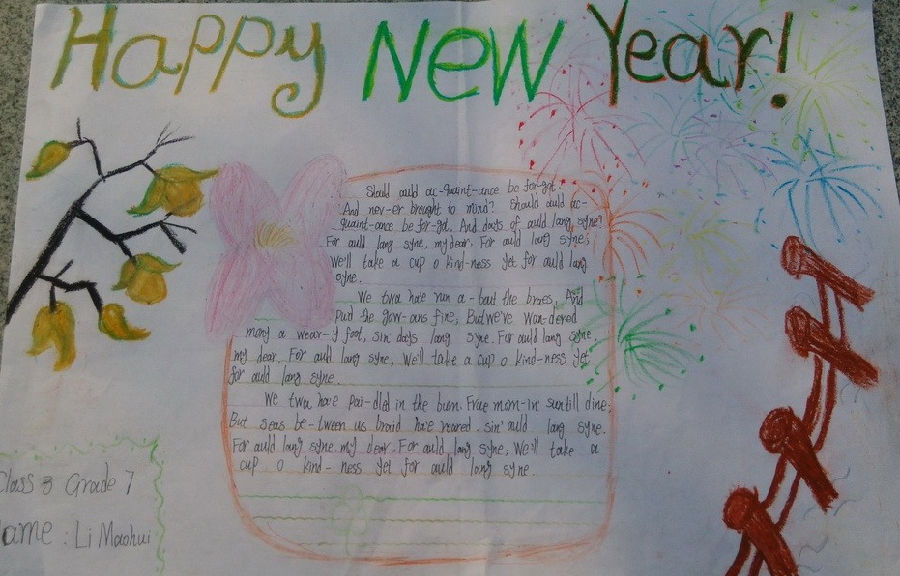 Happy New Year!
Should auld ac-quaint-ance be for-got.
And nev-er brought to mind? Should auld ac-
quaint-ance be for-got, And days of auld lang syne?
For auld lang syne, my dear, For auld lang syne;
We'll take a cup o kind-ness yet for auld lang
syne.
We twa hate run a-bout the braes, And
pu'd the gow-ans fine; But we've wan-dered
many a wear-y foot, sin days lang syne. For auld lang syne,
my dear, For auld lang syne, We'll take a cup o kind-ness yet
for auld lang syne.
We twa have pai-dled in the burn. Frae morn-in sun till dine;
But seas be-tween us braid have roared, sin' auld lang syne.
For auld lang syne, my dear, For auld lang syne, We'll take a
cup o kind-ness yet for auld lang syne.
Class 3 Grade 7
Name: Li Maohui